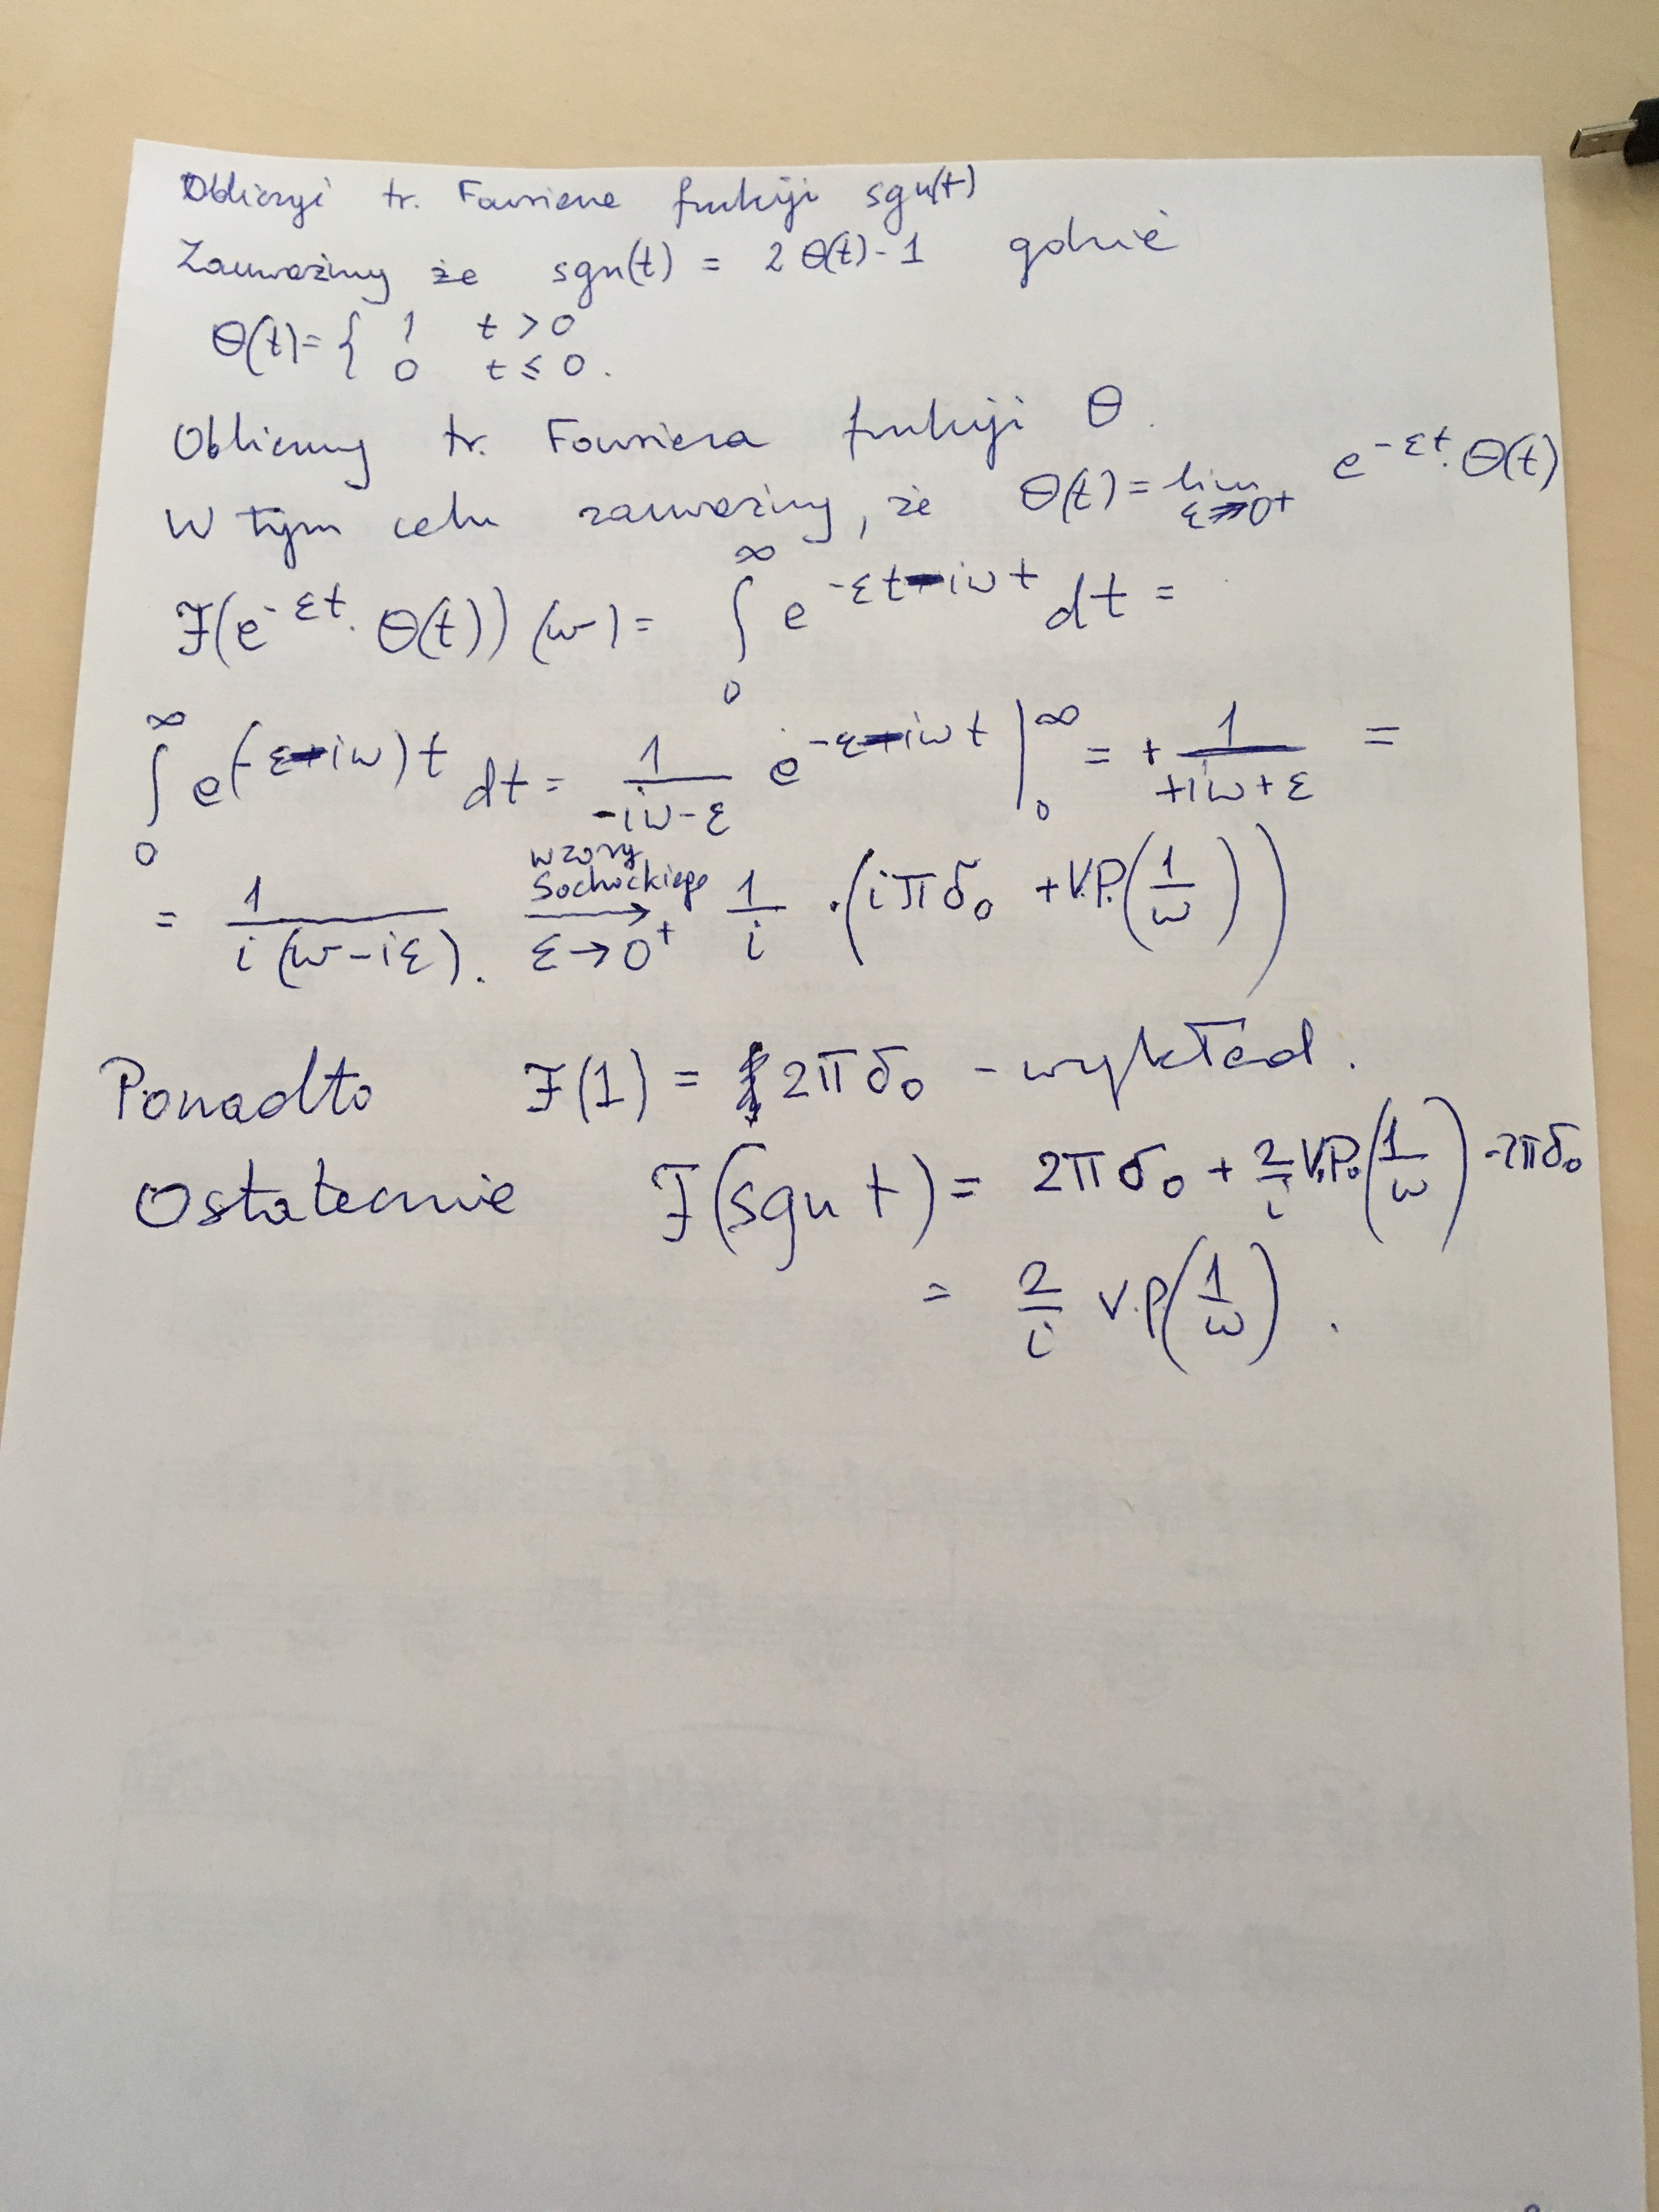 Obliczyć tr. Fouriera funkcji sgn(t)
Zauważmy że sgn(t) = 2 θ(t) - 1 gdzie
θ(t) = { 1 t > 0
0 t ≤ 0 .
Obliczmy tr. Fouriera funkcji θ .
W tym celu zauważmy, że θ(t) = lim_{ε→0⁺} e^{-εt} · θ(t)
ℱ(e^{-εt} · θ(t)) (ω) = ∫_0^∞ e^{-εt-iωt} dt =
∫_0^∞ e^{(-ε-iω)t} dt = 1/(-iω-ε) e^{-ε-iωt} |_0^∞ = + 1/(+iω+ε) =
= 1/(i(ω-iε)) . wzory Sochockiego → ε→0⁺ 1/i · (iπδ₀ + V.P.(1/ω))
Ponadto ℱ(1) = 2πδ₀ - wykład .
Ostatecznie ℱ(sgn t) = 2πδ₀ + 2/i V.P.(1/ω) - 2πδ₀
= 2/i V.P.(1/ω) .